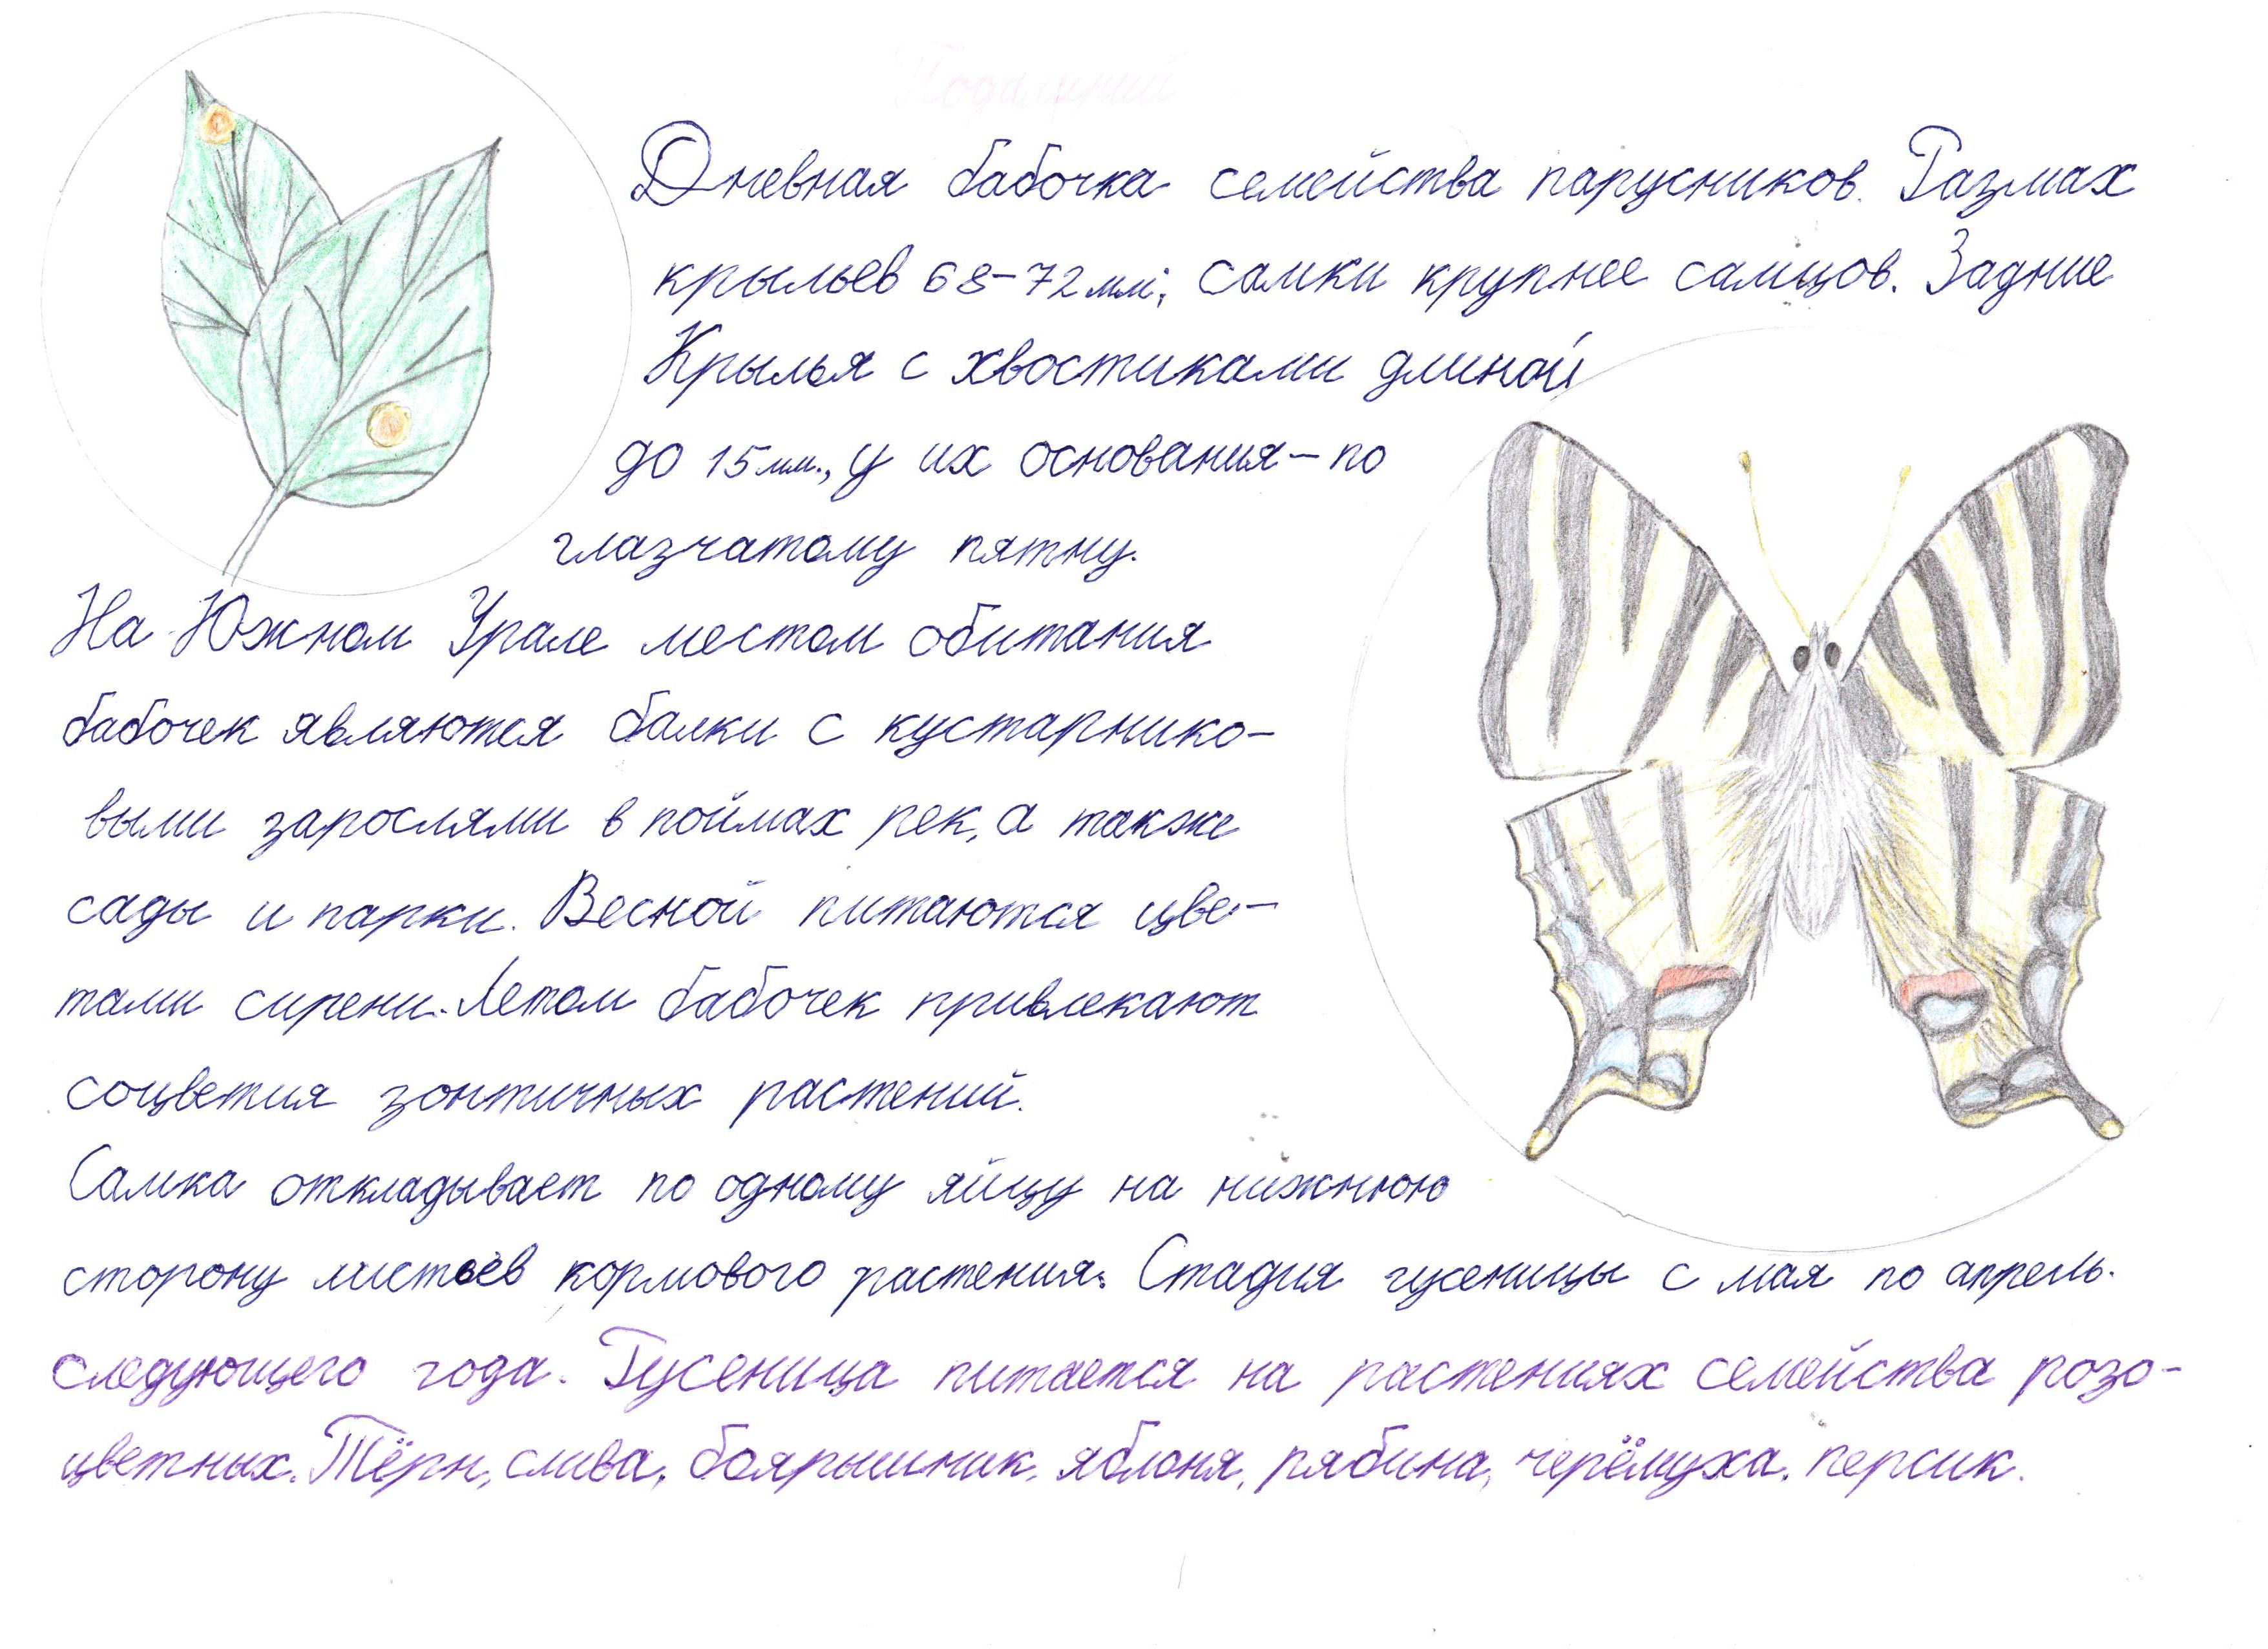 Подалирий
Дневная бабочка семейства парусников. Размах
крыльев 68-72мм; самки крупнее самцов. Задние
Крылья с хвостиками длиной
до 15мм., у их основания-по
глазчатому пятну.
На Южном Урале местом обитания
бабочек являются балки с кустарнико-
выми зарослями в поймах рек, а также
сады и парки. Весной питаются цве-
тами сирени. Летом бабочек привлекают
соцветия зонтичных растений.
Самка откладывает по одному яйцу на нижнюю
сторону листьев кормового растения. Стадия гусеницы с мая по апрель.
следующего года. Гусеница питается на растениях семейства розо-
цветных. Тёрн, слива, боярышник, яблоня, рябина, черёмуха, персик.